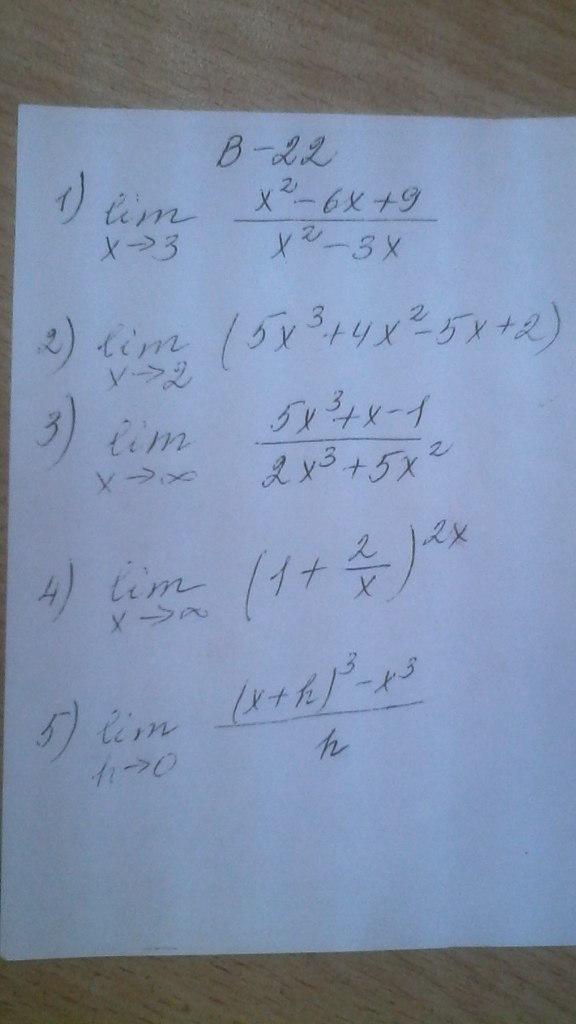 В-22
1) lim x→3 (x²-6x+9)/(x²-3x)
2) lim x→2 (5x³+4x²-5x+2)
3) lim x→∞ (5x³+x-1)/(2x³+5x²)
4) lim x→∞ (1+2/x)^(2x)
5) lim h→0 ((x+h)³-x³)/h